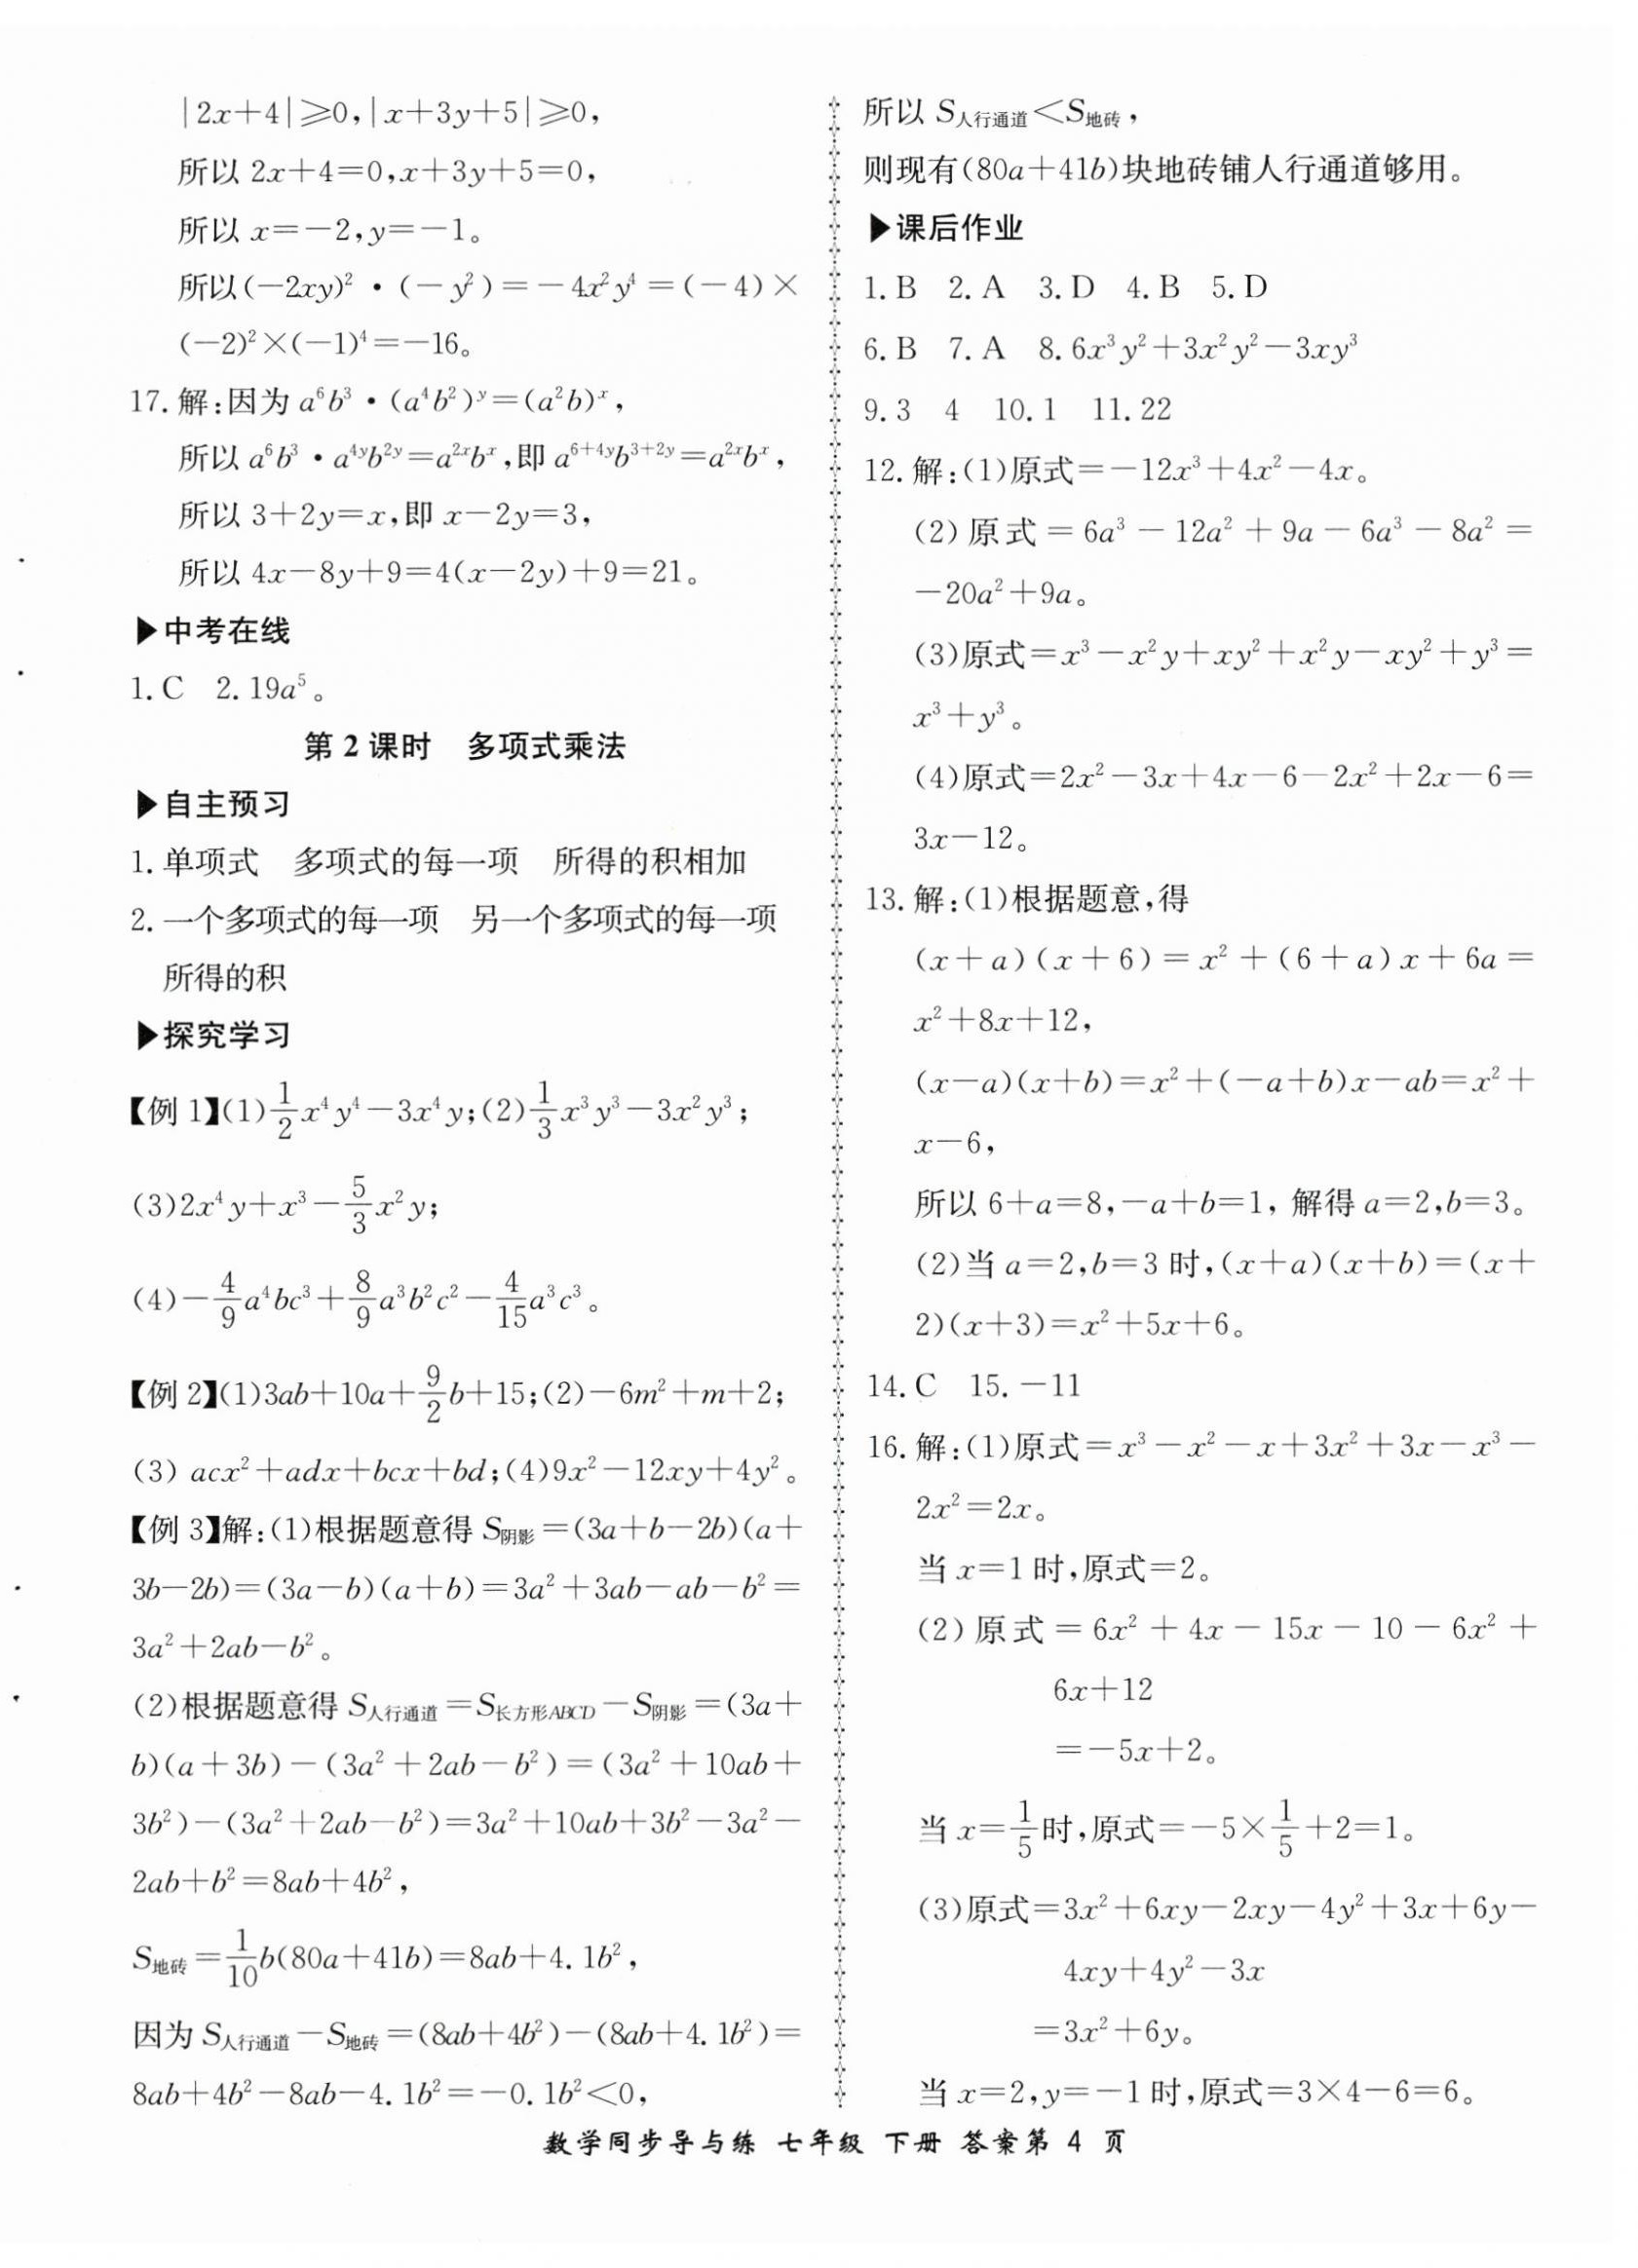 |2x+4|≥0,|x+3y+5|≥0,
所以 2x+4=0,x+3y+5=0,
所以 x=-2,y=-1。
所以(-2xy)²·(-y²)=-4x²y⁴=(-4)×
(-2)²×(-1)⁴=-16。
17. 解:因为 a⁶b³·(a⁴b²)ʸ=(a²b)ˣ,
所以 a⁶b³·a⁴ʸb²ʸ=a²ˣbˣ,即 a⁶⁺⁴ʸb³⁺²ʸ=a²ˣbˣ,
所以 3+2y=x,即 x-2y=3,
所以 4x-8y+9=4(x-2y)+9=21。
▶中考在线
1. C 2. 19a⁵。
第 2 课时 多项式乘法
▶自主预习
1. 单项式 多项式的每一项 所得的积相加
2. 一个多项式的每一项 另一个多项式的每一项
所得的积
▶探究学习
【例 1】(1)1/2x⁴y⁴-3x⁴y;(2)1/3x³y³-3x²y³;
(3)2x⁴y+x³-5/3x²y;
(4)-4/9a⁴bc³+8/9a³b²c²-4/15a³c³。
【例 2】(1)3ab+10a+9/2b+15;(2)-6m²+m+2;
(3) acx²+adx+bcx+bd;(4)9x²-12xy+4y²。
【例 3】解:(1)根据题意得 S阴影=(3a+b-2b)(a+
3b-2b)=(3a-b)(a+b)=3a²+3ab-ab-b²=
3a²+2ab-b²。
(2)根据题意得 S人行通道=S长方形ABCD-S阴影=(3a+
b)(a+3b)-(3a²+2ab-b²)=(3a²+10ab+
3b²)-(3a²+2ab-b²)=3a²+10ab+3b²-3a²-
2ab+b²=8ab+4b²,
S地砖=1/10b(80a+41b)=8ab+4.1b²,
因为 S人行通道-S地砖=(8ab+4b²)-(8ab+4.1b²)=
8ab+4b²-8ab-4.1b²=-0.1b²<0,
所以 S人行通道<S地砖,
则现有(80a+41b)块地砖铺人行通道够用。
▶课后作业
1. B 2. A 3. D 4. B 5. D
6. B 7. A 8. 6x³y²+3x²y²-3xy³
9. 3 4 10. 1 11. 22
12. 解:(1)原式=-12x³+4x²-4x。
(2)原式=6a³-12a²+9a-6a³-8a²=
-20a²+9a。
(3)原式=x³-x²y+xy²+x²y-xy²+y³=
x³+y³。
(4)原式=2x²-3x+4x-6-2x²+2x-6=
3x-12。
13. 解:(1)根据题意,得
(x+a)(x+6)=x²+(6+a)x+6a=
x²+8x+12,
(x-a)(x+b)=x²+(-a+b)x-ab=x²+
x-6,
所以 6+a=8,-a+b=1, 解得 a=2,b=3。
(2)当 a=2,b=3 时,(x+a)(x+b)=(x+
2)(x+3)=x²+5x+6。
14. C 15. -11
16. 解:(1)原式=x³-x²-x+3x²+3x-x³-
2x²=2x。
当 x=1 时,原式=2。
(2)原式=6x²+4x-15x-10-6x²+
6x+12
=-5x+2。
当 x=1/5时,原式=-5×1/5+2=1。
(3)原式=3x²+6xy-2xy-4y²+3x+6y-
4xy+4y²-3x
=3x²+6y。
当 x=2,y=-1 时,原式=3×4-6=6。
数学同步导与练 七年级 下册 答案第 4 页